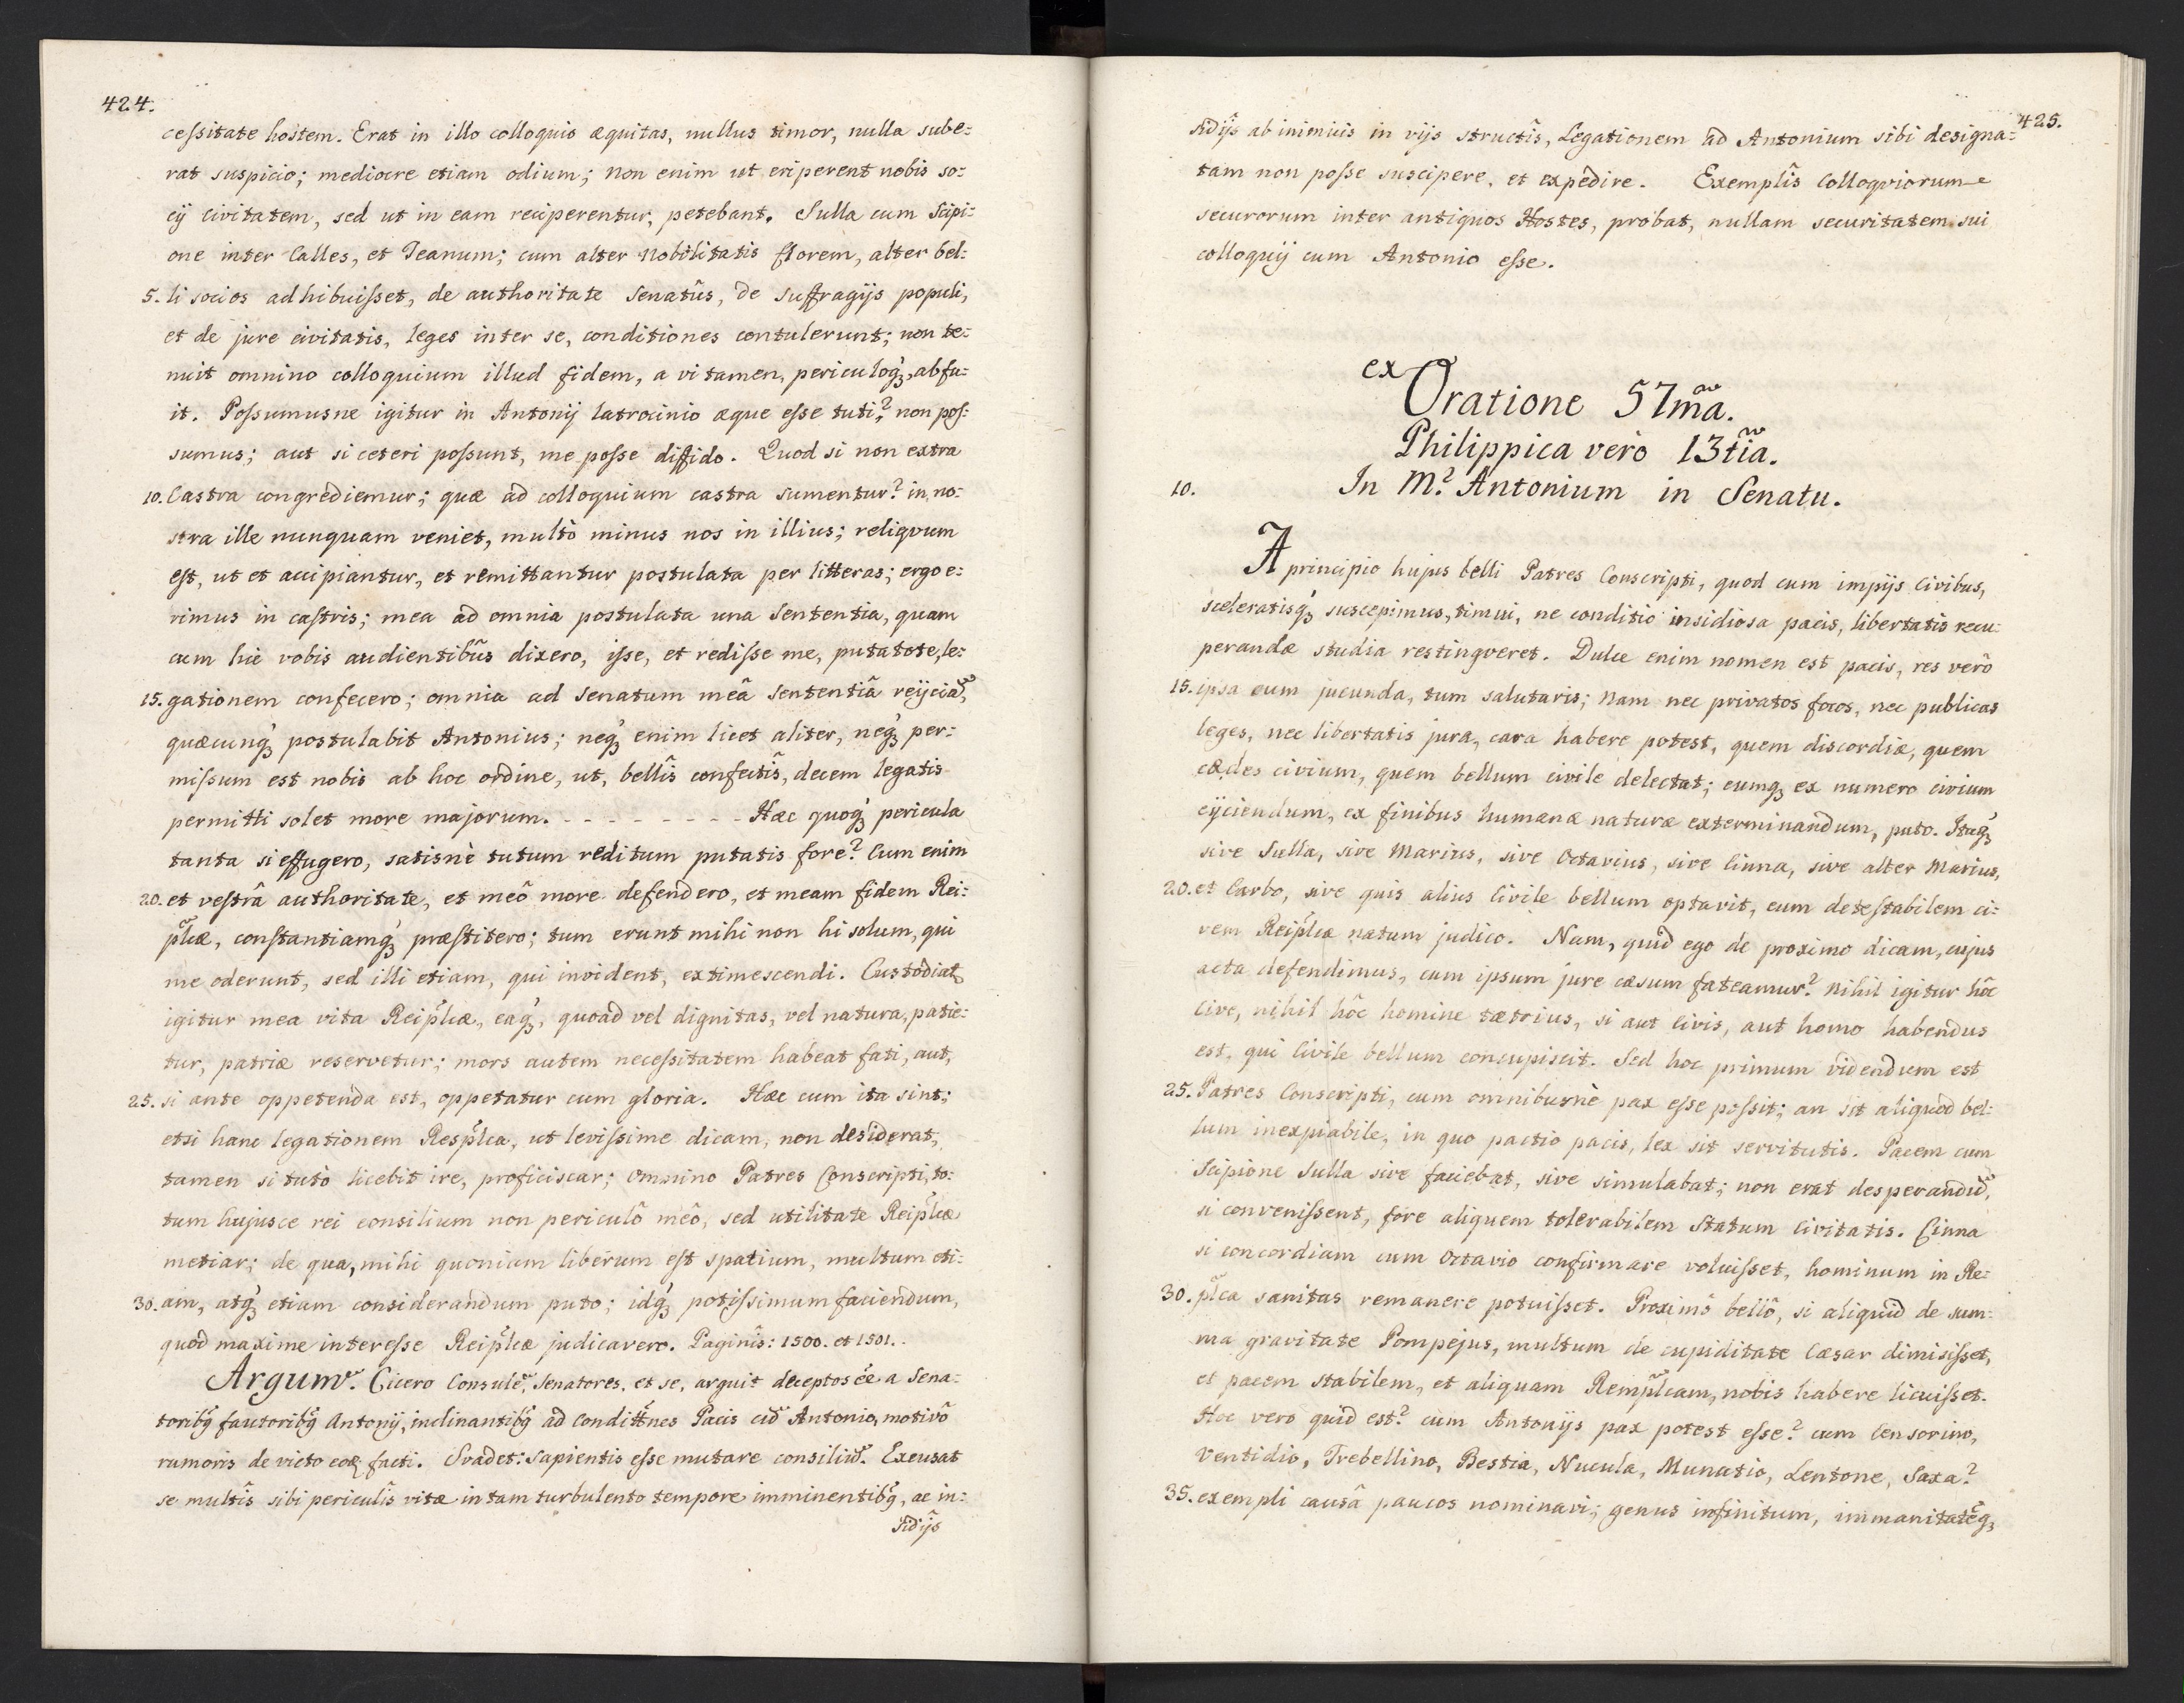 424.
cessitate hostem. Erat in illo colloquio æquitas, nullus timor, nulla sube:
rat suspicio; mediocre etiam odium; non enim ut eriperent nobis so:
cij civitatem, sed ut in eam reciperentur, petebant. Sulla cum Scipi:
one inter Calles, et Teanum; cum alter Nobilitatis florem, alter bel:
5. li socios adhibuisset, de authoritate Senatûs, de suffragijs populi,
et de jure civitatis, leges inter se, conditiones contulerunt; non te:
nuit omnino colloquium illud fidem, a vi tamen, periculoq́, abfu:
it. Possumusne igitur in Antonij latrocinio æque esse tuti? non pos:
sumus; aut si ceteri possunt, me posse diffido. Quod si non extra
10. Castra congrediemur; quæ ad colloquium castra sumentur? in no:
stra ille nunquam veniet, multò minus nos in illius; reliqvum
est, ut et accipiantur, et remittantur postulata per litteras; ergo e:
rimus in castris; mea ad omnia postulata una Sententia, quam
cum hic vobis audientibûs dixero, isse, et redisse me, putatote, le:
15. gationem confecero; omnia ad Senatum meâ Sententiâ reijcia͠,
quæcunq́ postulabit Antonius; neq́ enim licet aliter, neq́ per:
missum est nobis ab hoc ordine, ut, bellîs confectîs, decem legatis
permitti solet more majorum. - - - - - - - - - Hæc quoq́ pericula
tanta si effugero, satisnè tutum reditum putatis fore? Cum enim
20. et vestrâ authoritate, et meô more defendero, et meam fidem Rei:
pl̃cæ, constantiamq́ præstitero; tum erunt mihi non hi solum, qui
me oderunt, sed illi etiam, qui invident, extimescendi. Custodiat
igitur mea vita Reipl̃cæ, eaq́, quoad vel dignitas, vel natura, patie:
tur, patriæ reservetur; mors autem necessitatem habeat fati, aut,
25. si ante oppetenda est, oppetatur cum gloria. Hæc cum ita sint;
etsi hanc legationem Respl̃ca, ut levissime dicam, non desiderat,
tamen si tutò licebit ire, proficiscar; Omnino Patres Conscripti, to:
tum hujusce rei consilium non periculô meô, sed utilitate Reipl̃cæ
metiar; de qua, mihi quoniam liberum est spatium, multum eti:
30. am, atq́ etiam considerandum puto; idq́ potissimum faciendum,
quod maxime interesse Reipl̃cæ judicavero. Paginîs: 1500. et 1501.
Argum͠. Cicero Consule͠, Senatores, et se, arguit deceptos ẽe a Sena:
toribq̃ fautoribq̃ Antonij, inclinantibq̃ ad condit̃nes Pacis cu͠ Antonio, motivô
rumoris de victo eoꝝ facti. Svadet: Sapientis esse mutare consiliu͠. Excusat
se multîs sibi periculîs vitæ in tam turbulento tempore imminentibq̃, ac in:
sidijs
425.
sidijs ab inimicis in vijs structîs, Legationem ad Antonium sibi designa:
tam non posse suscipere, et expedire. Exemplîs Colloqviorum
securorum inter antiquos Hostes, probat, nullam securitatem sui
colloquij cum Antonio esse.
ex Oratione 57mã.
Philippica verò 13tiã.
10. In M? Antonium in Senatu.
A principio hujus belli Patres Conscripti, quod cum impijs Civibus,
sceleratisq́ suscepimus, timui, ne conditio insidiosa pacis, libertatis recu:
perandæ studia restingveret. Dulce enim nomen est pacis, res verò
15. ipsa cum jucunda, tum salutaris; Nam nec privatos focos, nec publicas
leges, nec libertatis jura, cara habere potest, quem discordiæ, quem
cædes civium, quem bellum civile delectat; eumq́ ex numero civium
ejiciendum, ex finibus humanæ naturæ exterminandum, puto. Itaq́
sive Sulla, sive Marius, sive Octavius, sive Cinna, sive alter Marius,
20. et Carbo, sive quis alius Civile bellum optavit, eum detestabilem ci:
vem Reipl̃cæ natum judico. Nam, quid ego de proximo dicam, cujus
acta defendimus, cum ipsum jure cæsum fateamur? Nihil igitur hôc
Cive, nihil hôc homine tætrius, si aut Civis, aut homo habendus
est, qui Civile bellum concupiscit. Sed hoc primum videndum est
25. Patres Conscripti, cum omnibusnè pax esse possit; an sit aliquod bel:
lum inexpiabile, in quo pactio pacis, lex sit servitutis. Pacem cum
Scipione Sulla sive faciebat, sive simulabat; non erat desperandu͠,
si convenissent, fore aliquem tolerabilem Statum Civitatis. Cinna
si concordiam cum Octavio confirmare voluisset, hominum in Re:
30. pl̃ca sanitas remanere potuisset. Proximô bellô, si aliquid de sum:
ma gravitate Pompejus, multum de cupiditate Cæsar dimisisset,
et pacem stabilem, et aliquam Rempl̃cam, nobis habere licuisset.
Hoc vero quid est? cum Antonijs pax potest esse? cum Censorino,
Ventidio, Trebellino, Bestia, Nucula, Munatio, Lentone, Saxa?
35. exempli causâ paucos nominavi; genus infinitum, immanitate͠q́